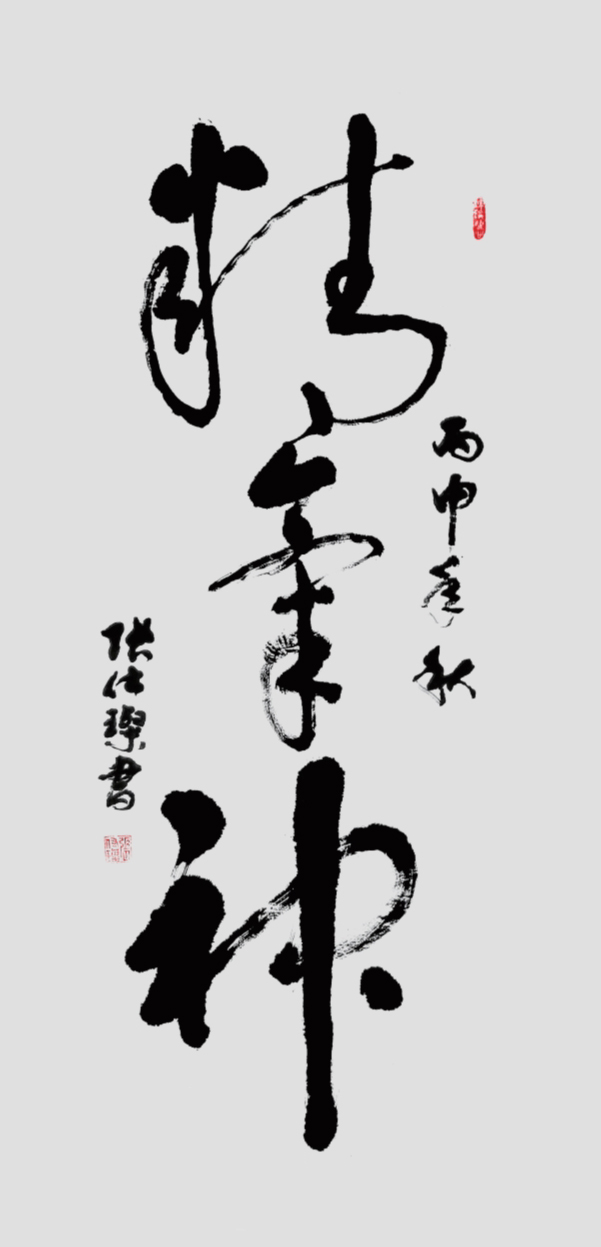 精氣神
丙申年秋
張仕璨書